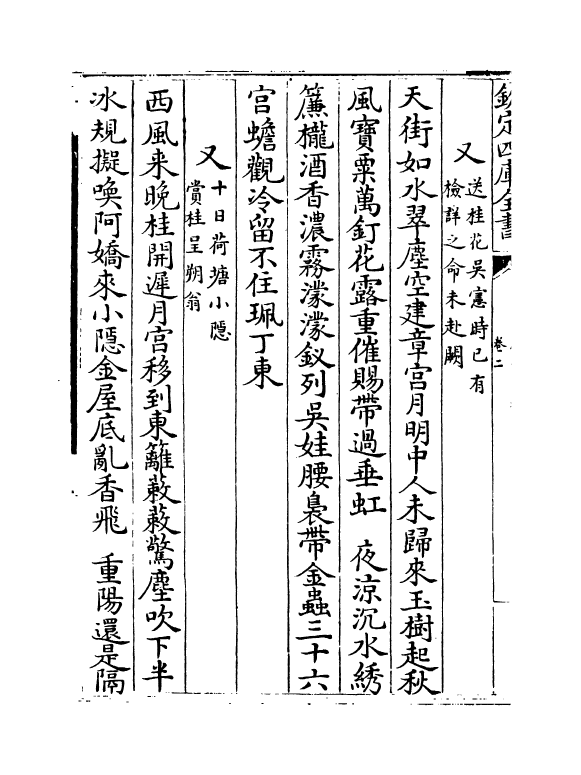 欽定四庫全書
卷二
又
送桂花吳憲時已有
檢詳之命未赴闕
天街如水翠塵空建章宮月明中人未歸來玉樹起秋
風寶粟萬釘花露重催賜帶過垂虹　夜涼沉水綉
簾櫳酒香濃霧濛濛釵列吳娃腰褭帶金蟲三十六
宮蟾觀冷留不住珮丁東
又
十日荷塘小隱
賞桂呈朔翁
西風来晚桂開遲月宮移到東籬蔌蔌驚塵吹下半
冰規擬喚阿嬌來小隱金屋底亂香飛　重陽還是隔